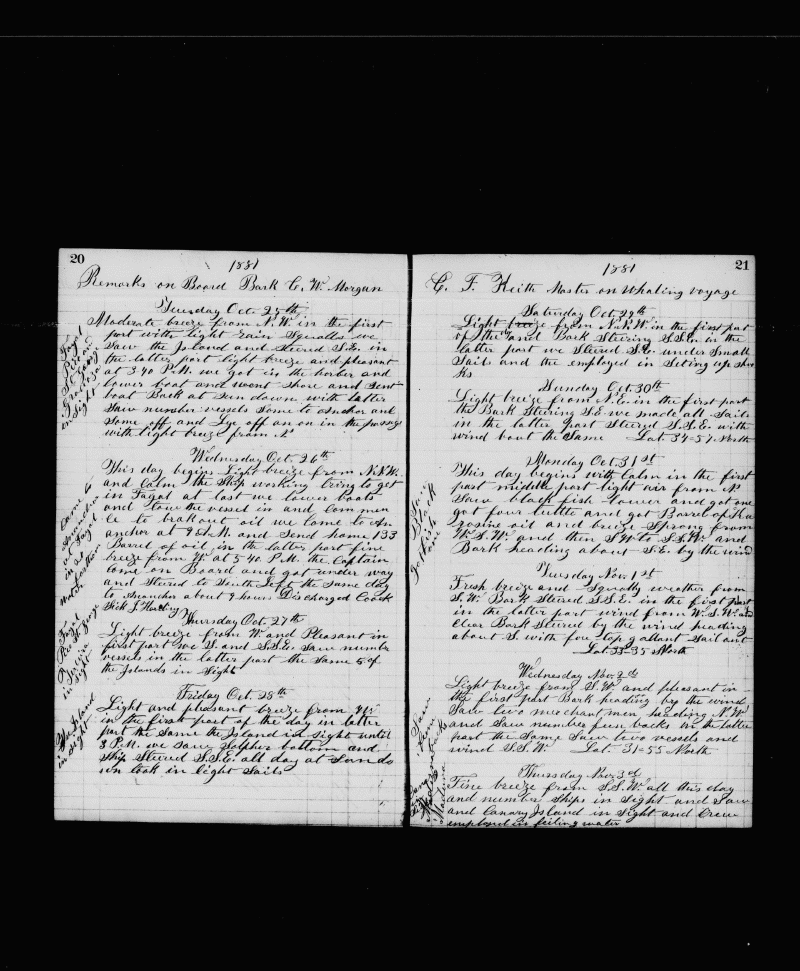 20
1881
Remarks on Board Bark C. W. Morgan
Tuesday Oct. 25th
Moderate breeze from N. W. in the first
part with light rain Squalls we
Saw the Island and Steered S.E. in
the latter part light breeze and pleasant
at 3 40 P.M. we got in the horber and
Lower boat and went Shore and Sent
boat Back at Sun down with latter
Saw number vessels Some to anchor and
Some off and Lye off an on in the passage
with light breeze from N
Fayal
Pico
St. Georg
in Sight
Wednesday Oct. 26th
This day begins Light breeze from N.N.W.
and Calm the Ship working tring to get
in Fayal at last we lower boats
and tow the vessel in and Com men
ce to brakout oil we Come to An
anchor at 9 A.M. and Send home 133
Barrel of oil in the latter part fine
breeze from W. at 5 40 P.M. the Captain
Come on Board and got under way
and Stered to South Left the Same day
to Ananchor about 9 hours Discharged Coock
Came to
at Fayal
Thursday Oct. 27th
Light breeze from W. and Pleasant in
first part we S. and S.S.E. Saw number
vessels in the latter part the Same 5 of
the Islands in Sight
Fayal
Pico St. Gorge
in Sight
Friday Oct. 28th
Light and pleasant breeze from W
in the first part of the day in latter
part the Same the Island in Sight until
3 P.M. we Saw Solpher bottom and
Ship Steered S.S.E. all day at Sundo
wn took in light Sails
The Island
in Sight
21
1881
C. F. Keith Master on Whaling voyage
Saturday Oct. 29th
Light breeze from N.N.W. in the first part
of the day and Bark Steering S.S.E. in the
latter part we Steered S.E. under Small
Sails and the employed in Seting up Sho
ks
Sunday Oct. 30th
Light breeze from N.E. in the first part
the Bark Steering S.E. we made all Sails
in the latter part Steered S.S.E. with
wind bout the Same Lat 37=57 North
Monday Oct. 31st
This day begins with Calm in the first
part middle part light air from N
Saw black fish Lower and got one
got four tuttle and got Barrel of Ka
rosine oil and breze Sprang from
W. S. W. and then S W to S.S.W. and
Bark heading about S.E. by the wind
Saw
Black
fish
Tuesday Nov. 1st
Fresh breeze and Squally weather from
S. W. Bark Steered S.S.E. in the first part
in the latter part wind from W. S. W. and
Clear Bark Steered by the wind heading
about S. with fore top gallant Sail out
Lat 35=35 North
Wednesday Nov. 2d
Light breeze from S. W. and pleasant in
the first part Bark heading by the wind
Saw two merchant men heading N. W.
and Saw number feen backs in the latter
part the Same Saw two vessels and
wind S.S.W. Lat. 31=55 North
Saw
Thursday Nov. 3d
Fine breeze from S.S.W. all this day
and number Ships in Sight and Saw
and Canary Island in Sight and Crew
employed in feeling water
Maderia